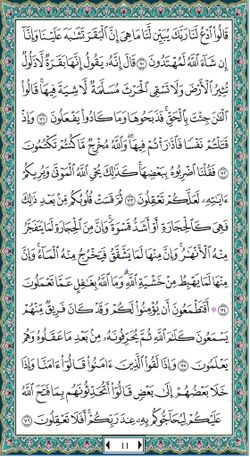 قَالُوا۟ ٱدْعُ لَنَا رَبَّكَ يُبَيِّن لَّنَا مَا هِىَ إِنَّ ٱلْبَقَرَ تَشَـٰبَهَ عَلَيْنَا وَإِنَّآ
إِن شَآءَ ٱللَّهُ لَمُهْتَدُونَ ٧٠ قَالَ إِنَّهُۥ يَقُولُ إِنَّهَا بَقَرَةٌ لَّا ذَلُولٌ
تُثِيرُ ٱلْأَرْضَ وَلَا تَسْقِى ٱلْحَرْثَ مُسَلَّمَةٌ لَّا شِيَةَ فِيهَا ۚ قَالُوا۟
ٱلْـَٔـٰنَ جِئْتَ بِٱلْحَقِّ ۚ فَذَبَحُوهَا وَمَا كَادُوا۟ يَفْعَلُونَ ٧١ وَإِذْ
قَتَلْتُمْ نَفْسًا فَٱدَّٰرَْٰٔتُمْ فِيهَا ۖ وَٱللَّهُ مُخْرِجٌ مَّا كُنتُمْ تَكْتُمُونَ
٧٢ فَقُلْنَا ٱضْرِبُوهُ بِبَعْضِهَا ۚ كَذَٰلِكَ يُحْىِ ٱللَّهُ ٱلْمَوْتَىٰ وَيُرِيكُمْ
ءَايَـٰتِهِۦ لَعَلَّكُمْ تَعْقِلُونَ ٧٣ ثُمَّ قَسَتْ قُلُوبُكُم مِّنۢ بَعْدِ ذَٰلِكَ
فَهِىَ كَٱلْحِجَارَةِ أَوْ أَشَدُّ قَسْوَةً ۚ وَإِنَّ مِنَ ٱلْحِجَارَةِ لَمَا يَتَفَجَّرُ
مِنْهُ ٱلْأَنْهَـٰرُ ۚ وَإِنَّ مِنْهَا لَمَا يَشَّقَّقُ فَيَخْرُجُ مِنْهُ ٱلْمَآءُ ۚ وَإِنَّ
مِنْهَا لَمَا يَهْبِطُ مِنْ خَشْيَةِ ٱللَّهِ ۗ وَمَا ٱللَّهُ بِغَـٰفِلٍ عَمَّا تَعْمَلُونَ
٧٤ ۞ أَفَتَطْمَعُونَ أَن يُؤْمِنُوا۟ لَكُمْ وَقَدْ كَانَ فَرِيقٌ مِّنْهُمْ
يَسْمَعُونَ كَلَـٰمَ ٱللَّهِ ثُمَّ يُحَرِّفُونَهُۥ مِنۢ بَعْدِ مَا عَقَلُوهُ وَهُمْ
يَعْلَمُونَ ٧٥ وَإِذَا لَقُوا۟ ٱلَّذِينَ ءَامَنُوا۟ قَالُوٓا۟ ءَامَنَّا وَإِذَا
خَلَا بَعْضُهُمْ إِلَىٰ بَعْضٍ قَالُوٓا۟ أَتُحَدِّثُونَهُم بِمَا فَتَحَ ٱللَّهُ
عَلَيْكُمْ لِيُحَآجُّوكُم بِهِۦ عِندَ رَبِّكُمْ ۚ أَفَلَا تَعْقِلُونَ ٧٦
١١